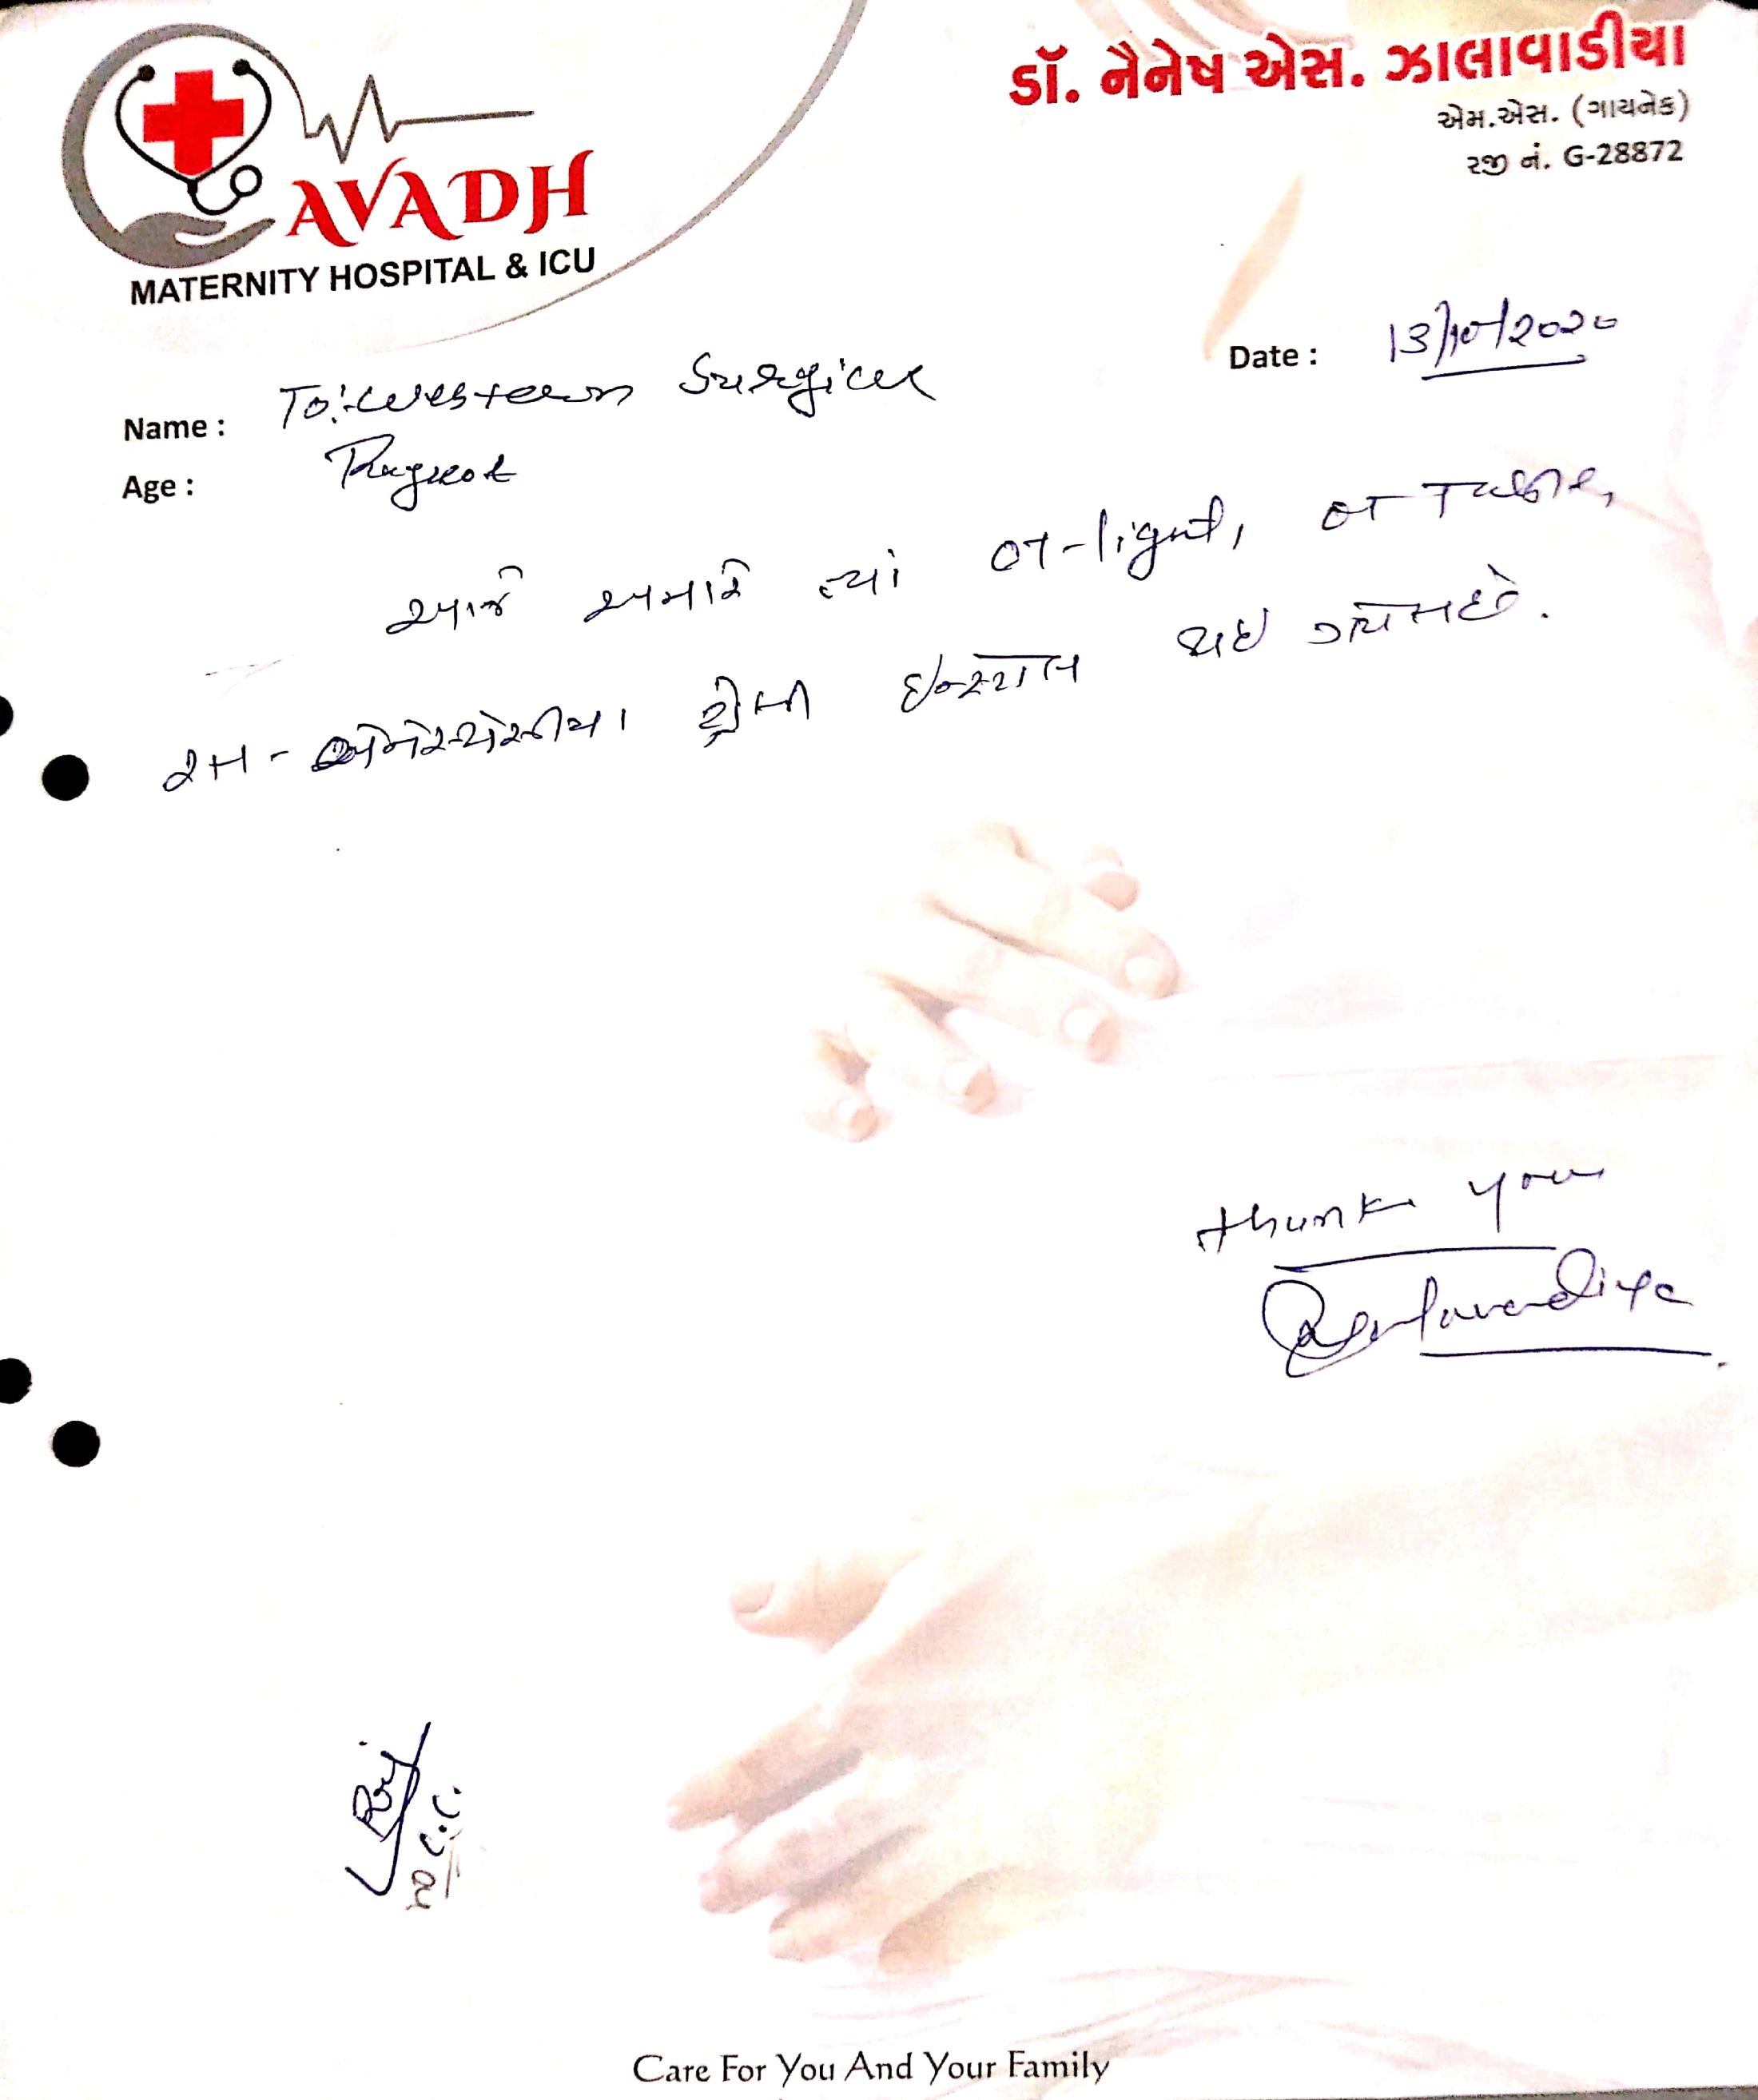 AVADH
MATERNITY HOSPITAL & ICU
ડૉ. નૈનેષ એસ. ઝાલાવાડીયા
એમ.એસ. (ગાયનેક)
રજી નં. G-28872
Date : 13/10/2020
Name : To:- Western Surgical
Age : Rajkot
આજે અમારે ત્યાં OT-light, OT Table,
અને થઇ
thank you
Care For You And Your Family